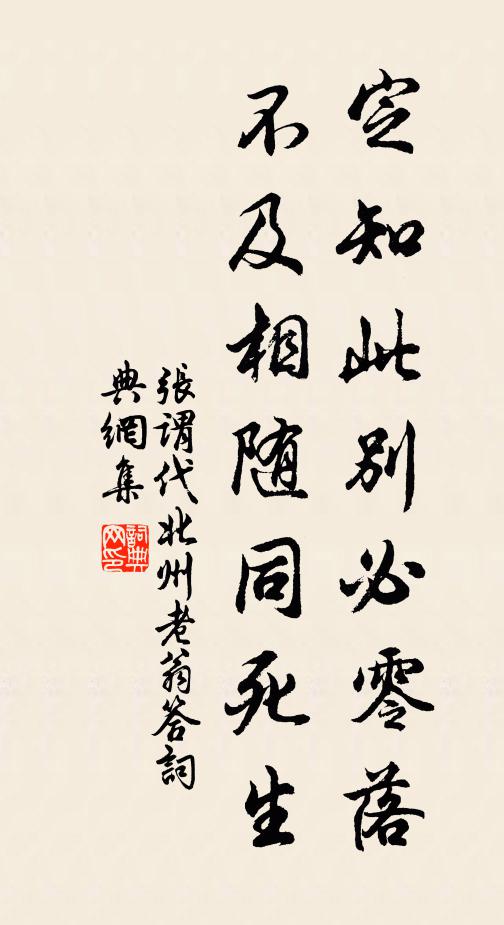 定知此别必零落
不及相随同死生
張謂代北州老翁答詞
典網集
詞典
网印